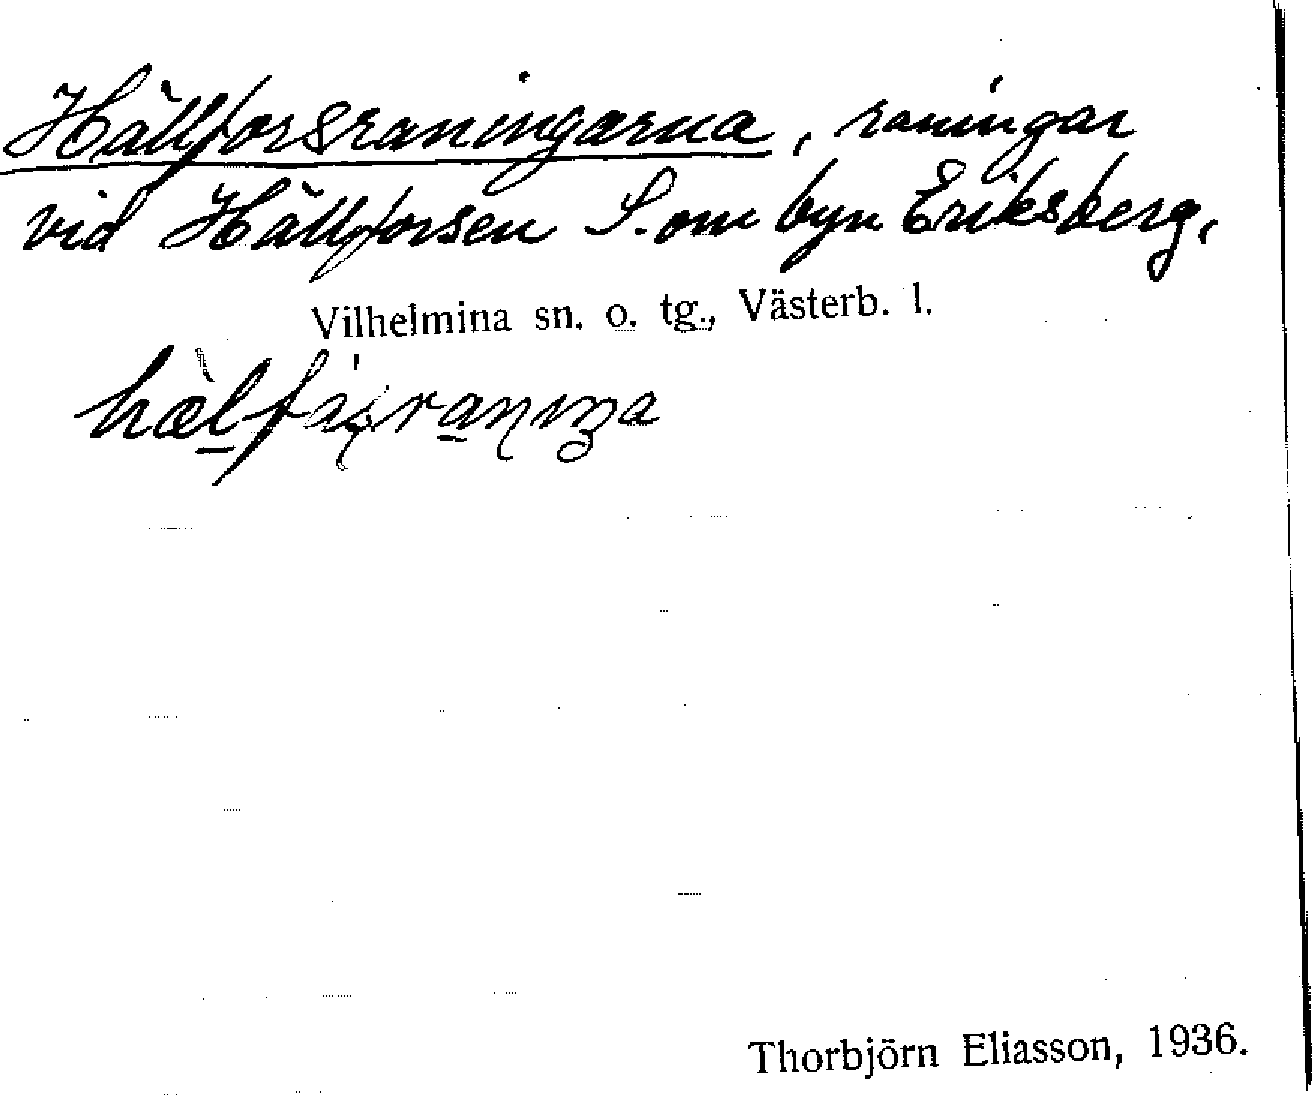 Hällforsraningarna, raningar
vid Hällforsen S. om byn Eriksberg,
Vilhelmina sn. o. tg., Västerb. l.
Thorbjörn Eliasson, 1936.